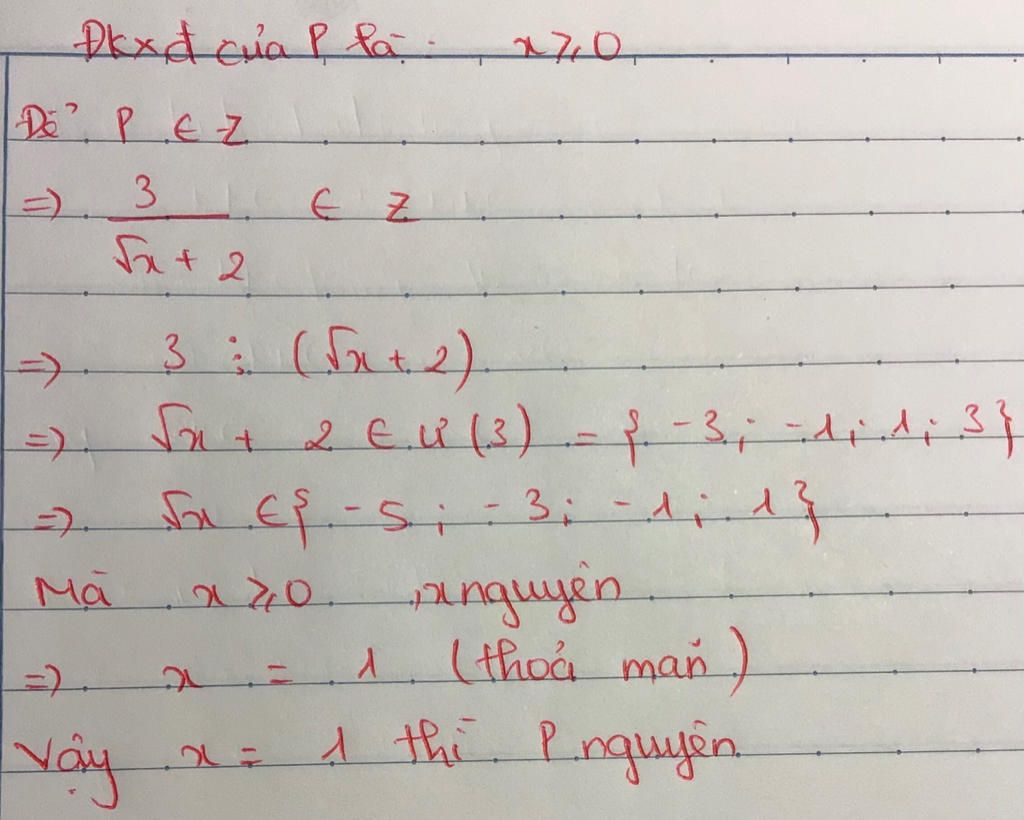 Đkxđ của P là: x ≥ 0
Để P ∈ Z
=> 3 / (√x + 2) ∈ Z
=> 3 ⋮ (√x + 2)
=> √x + 2 ∈ Ư(3) = {-3; -1; 1; 3}
=> √x ∈ {-5; -3; -1; 1}
Mà x ≥ 0, x nguyên
=> x = 1 (thoả mãn)
Vậy x = 1 thì P nguyên